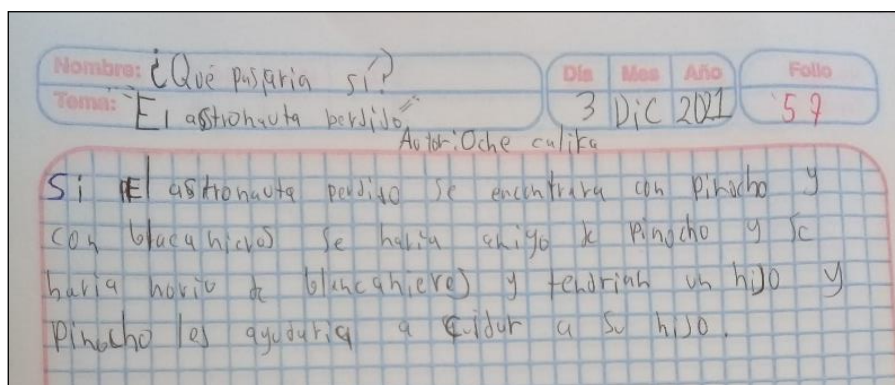 Nombre: ¿Qué pasaria si?
Día Mes Año Folio
Tema: "El astronauta perdido"
3 Dic 2021 57
Autor: Oche califa
Si El astronauta perdido se encontrara con pinocho y
con blacanieves se haria amigo de pinocho y se
haria novio de blancanieves y tendrian un hijo y
pinocho les ayudaria a cuidar a su hijo.